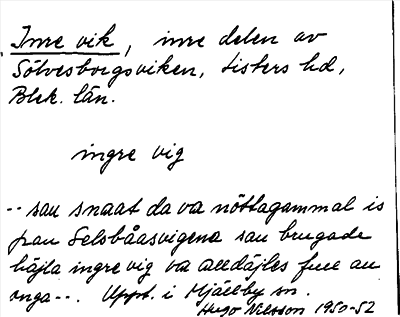 Inre vik, inre delen av
Sölvesborgsviken, Listers hd,
Blek. län.
ingre vig
-- sau snaat da va nöttagammal is
pau Selsbåasvigena sau brugade
häjla ingre vig va alldäjles full au
onga --. Uppt. i Mjällby sn.
Hugo Nilsson 1950-52